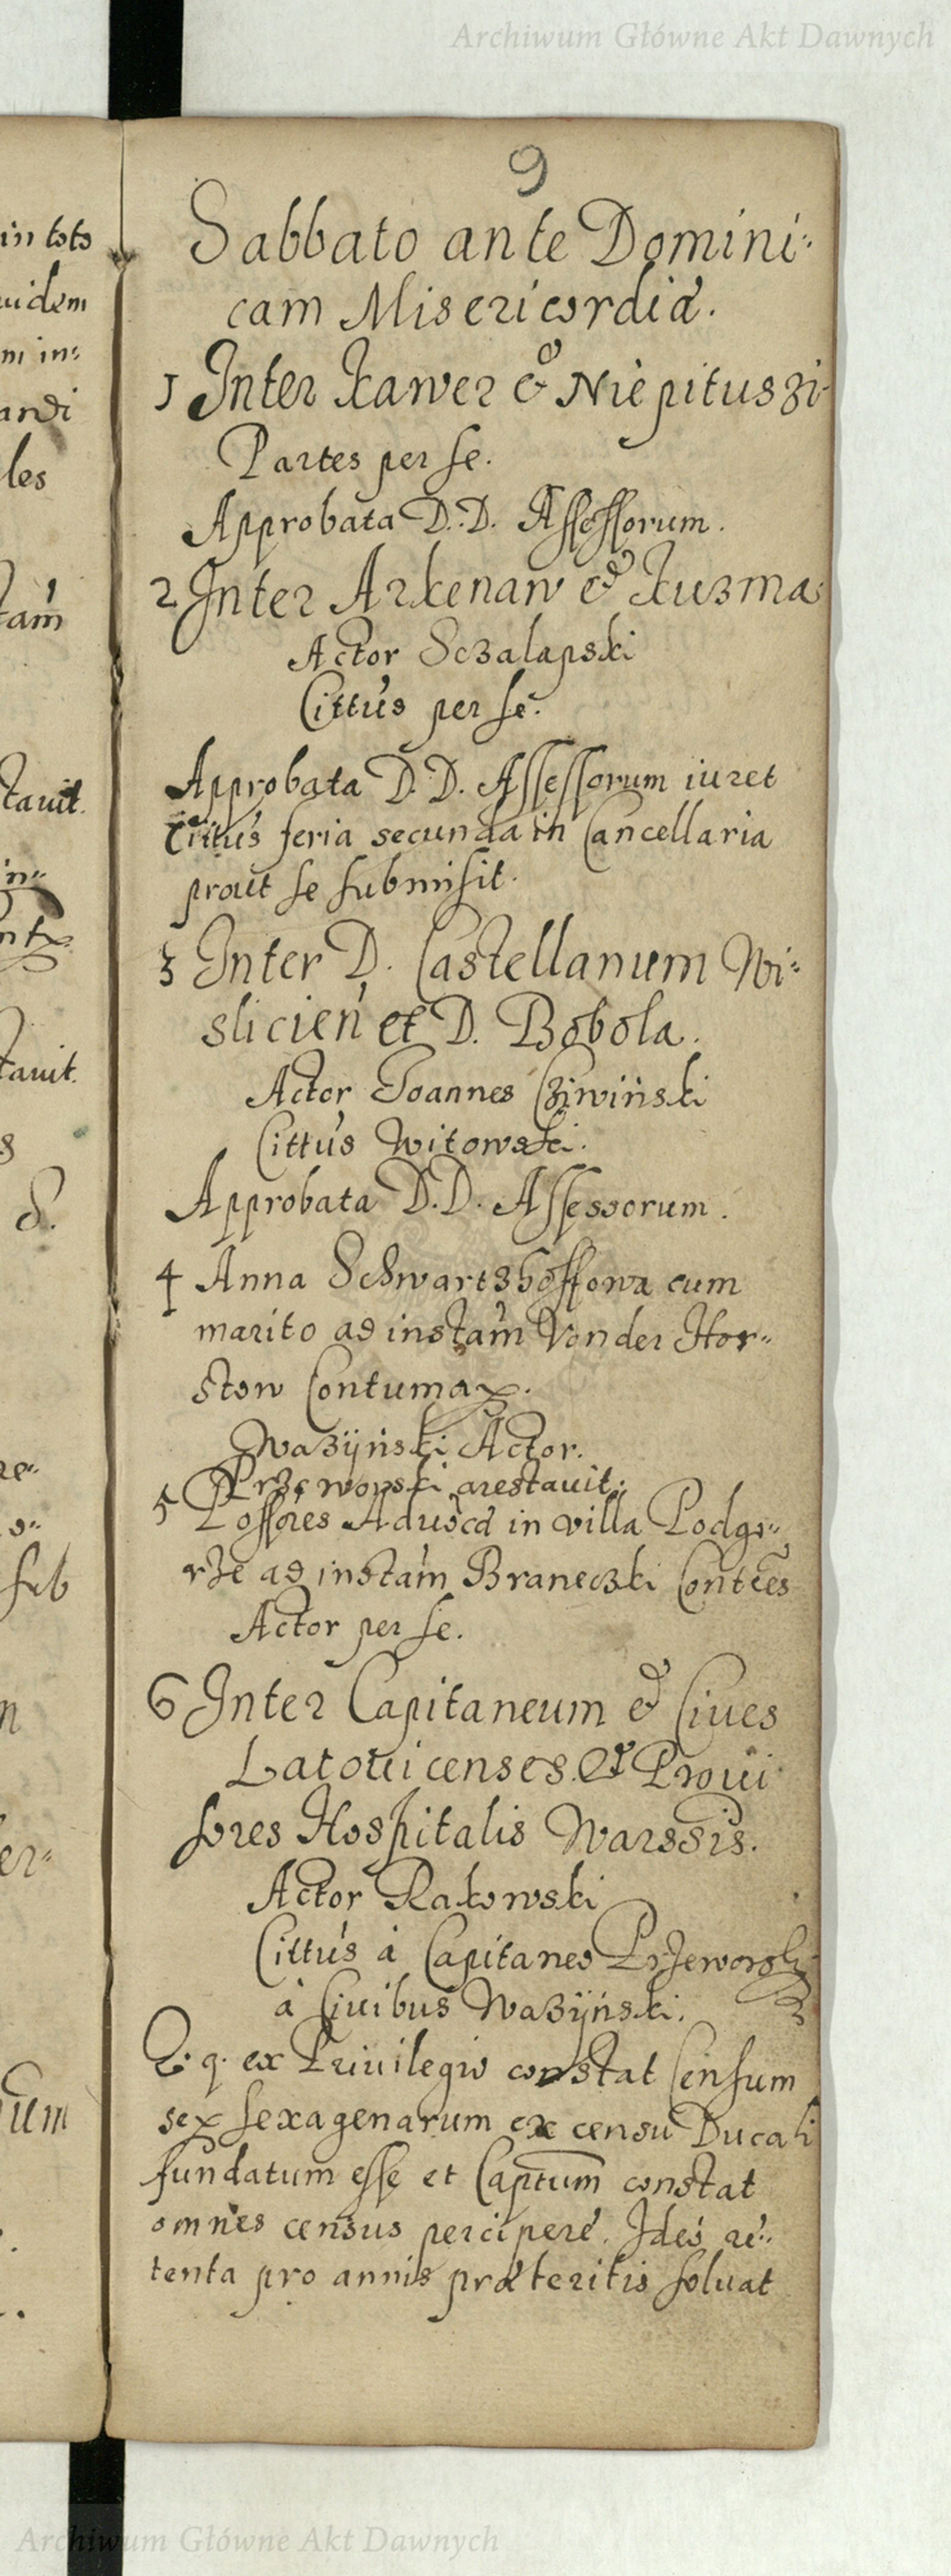 Archiwum Główne Akt Dawnych
9
Sabbato ante Domini:
cam Misericordiæ.
1 Inter Kawer & Niepituszi
Partes per se.
Approbata D. D. Assessorum.
2 Inter Arkenaw & Kuzma
Actor Sczalapski
Cittus per se.
Approbata D. D. Assessorum iuret
Cittus feria secunda in Cancellaria
prout se submisit.
3 Inter D. Castellanum Wi:
slicien et D. Bobola.
Actor Joannes Cziwiński
Cittus Witowski.
Approbata D. D. Assessorum.
4 Anna Schwartzhoffowa cum
marito ad instam Vonder Hor:
stow Contumax.
Wazÿnski Actor.
Przewoski arestauit.
5 Possores Aduocæ in villa Podgo:
rze ad instam Braneczki Contces
Actor per se.
6 Inter Capitaneum & Ciues
Latouicenses. Et Proui
sores Hospitalis Warssis.
Actor Rakowski
Cittus à Capitaneo Przeworski
à Ciuibus Wazÿński.
Q. q. ex Priuilegio constat Censum
sex sexagenarum ex censu Ducali
fundatum esse et Captum constat
omnes census percipere. Ideo re:
tenta pro annis præteritis soluat
in toto
uidem
m in:
andi
les
tam
tauit.
in:
tauit.
s
S.
re:
o:
sub
m
er:
um
Archiwum Główne Akt Dawnych